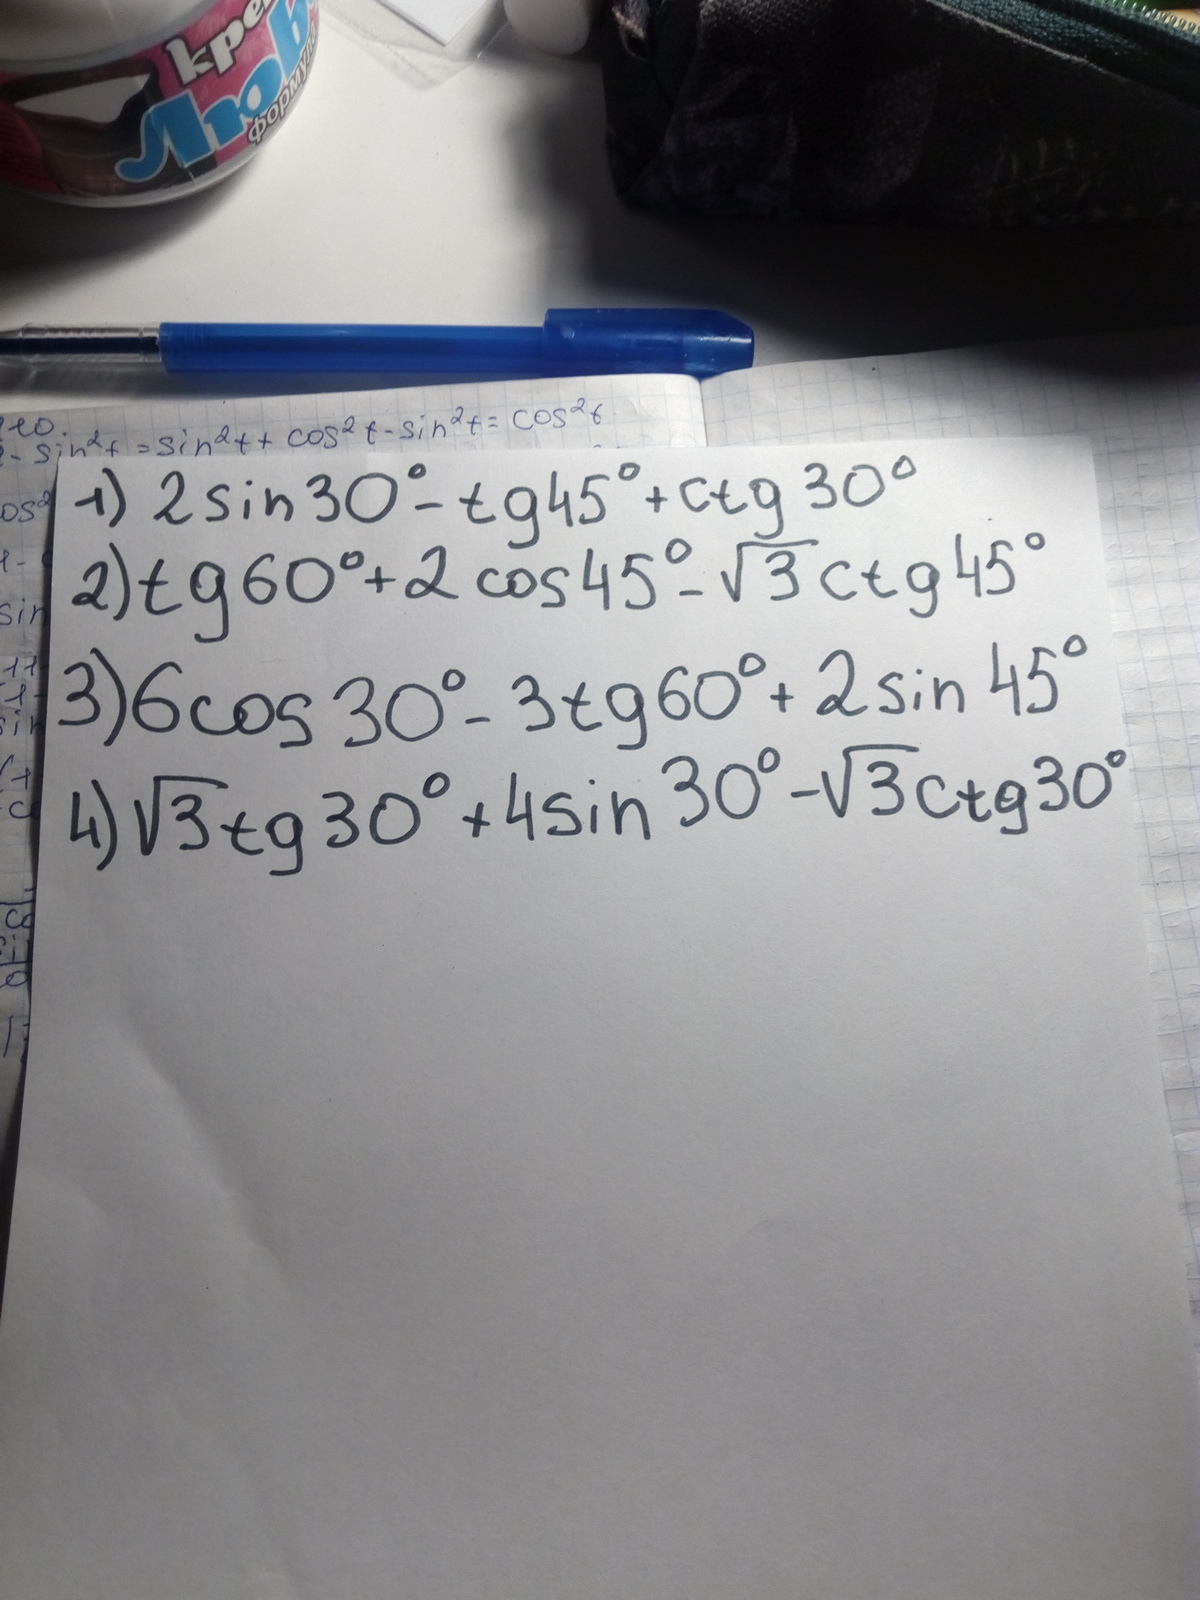 кре
Любо
форму
sin²t = sin²t + cos²t - sin²t = cos²t
1) 2 sin 30° - tg 45° + ctg 30°
2) tg 60° + 2 cos 45° - √3 ctg 45°
3) 6 cos 30° - 3 tg 60° + 2 sin 45°
4) √3 tg 30° + 4 sin 30° - √3 ctg 30°